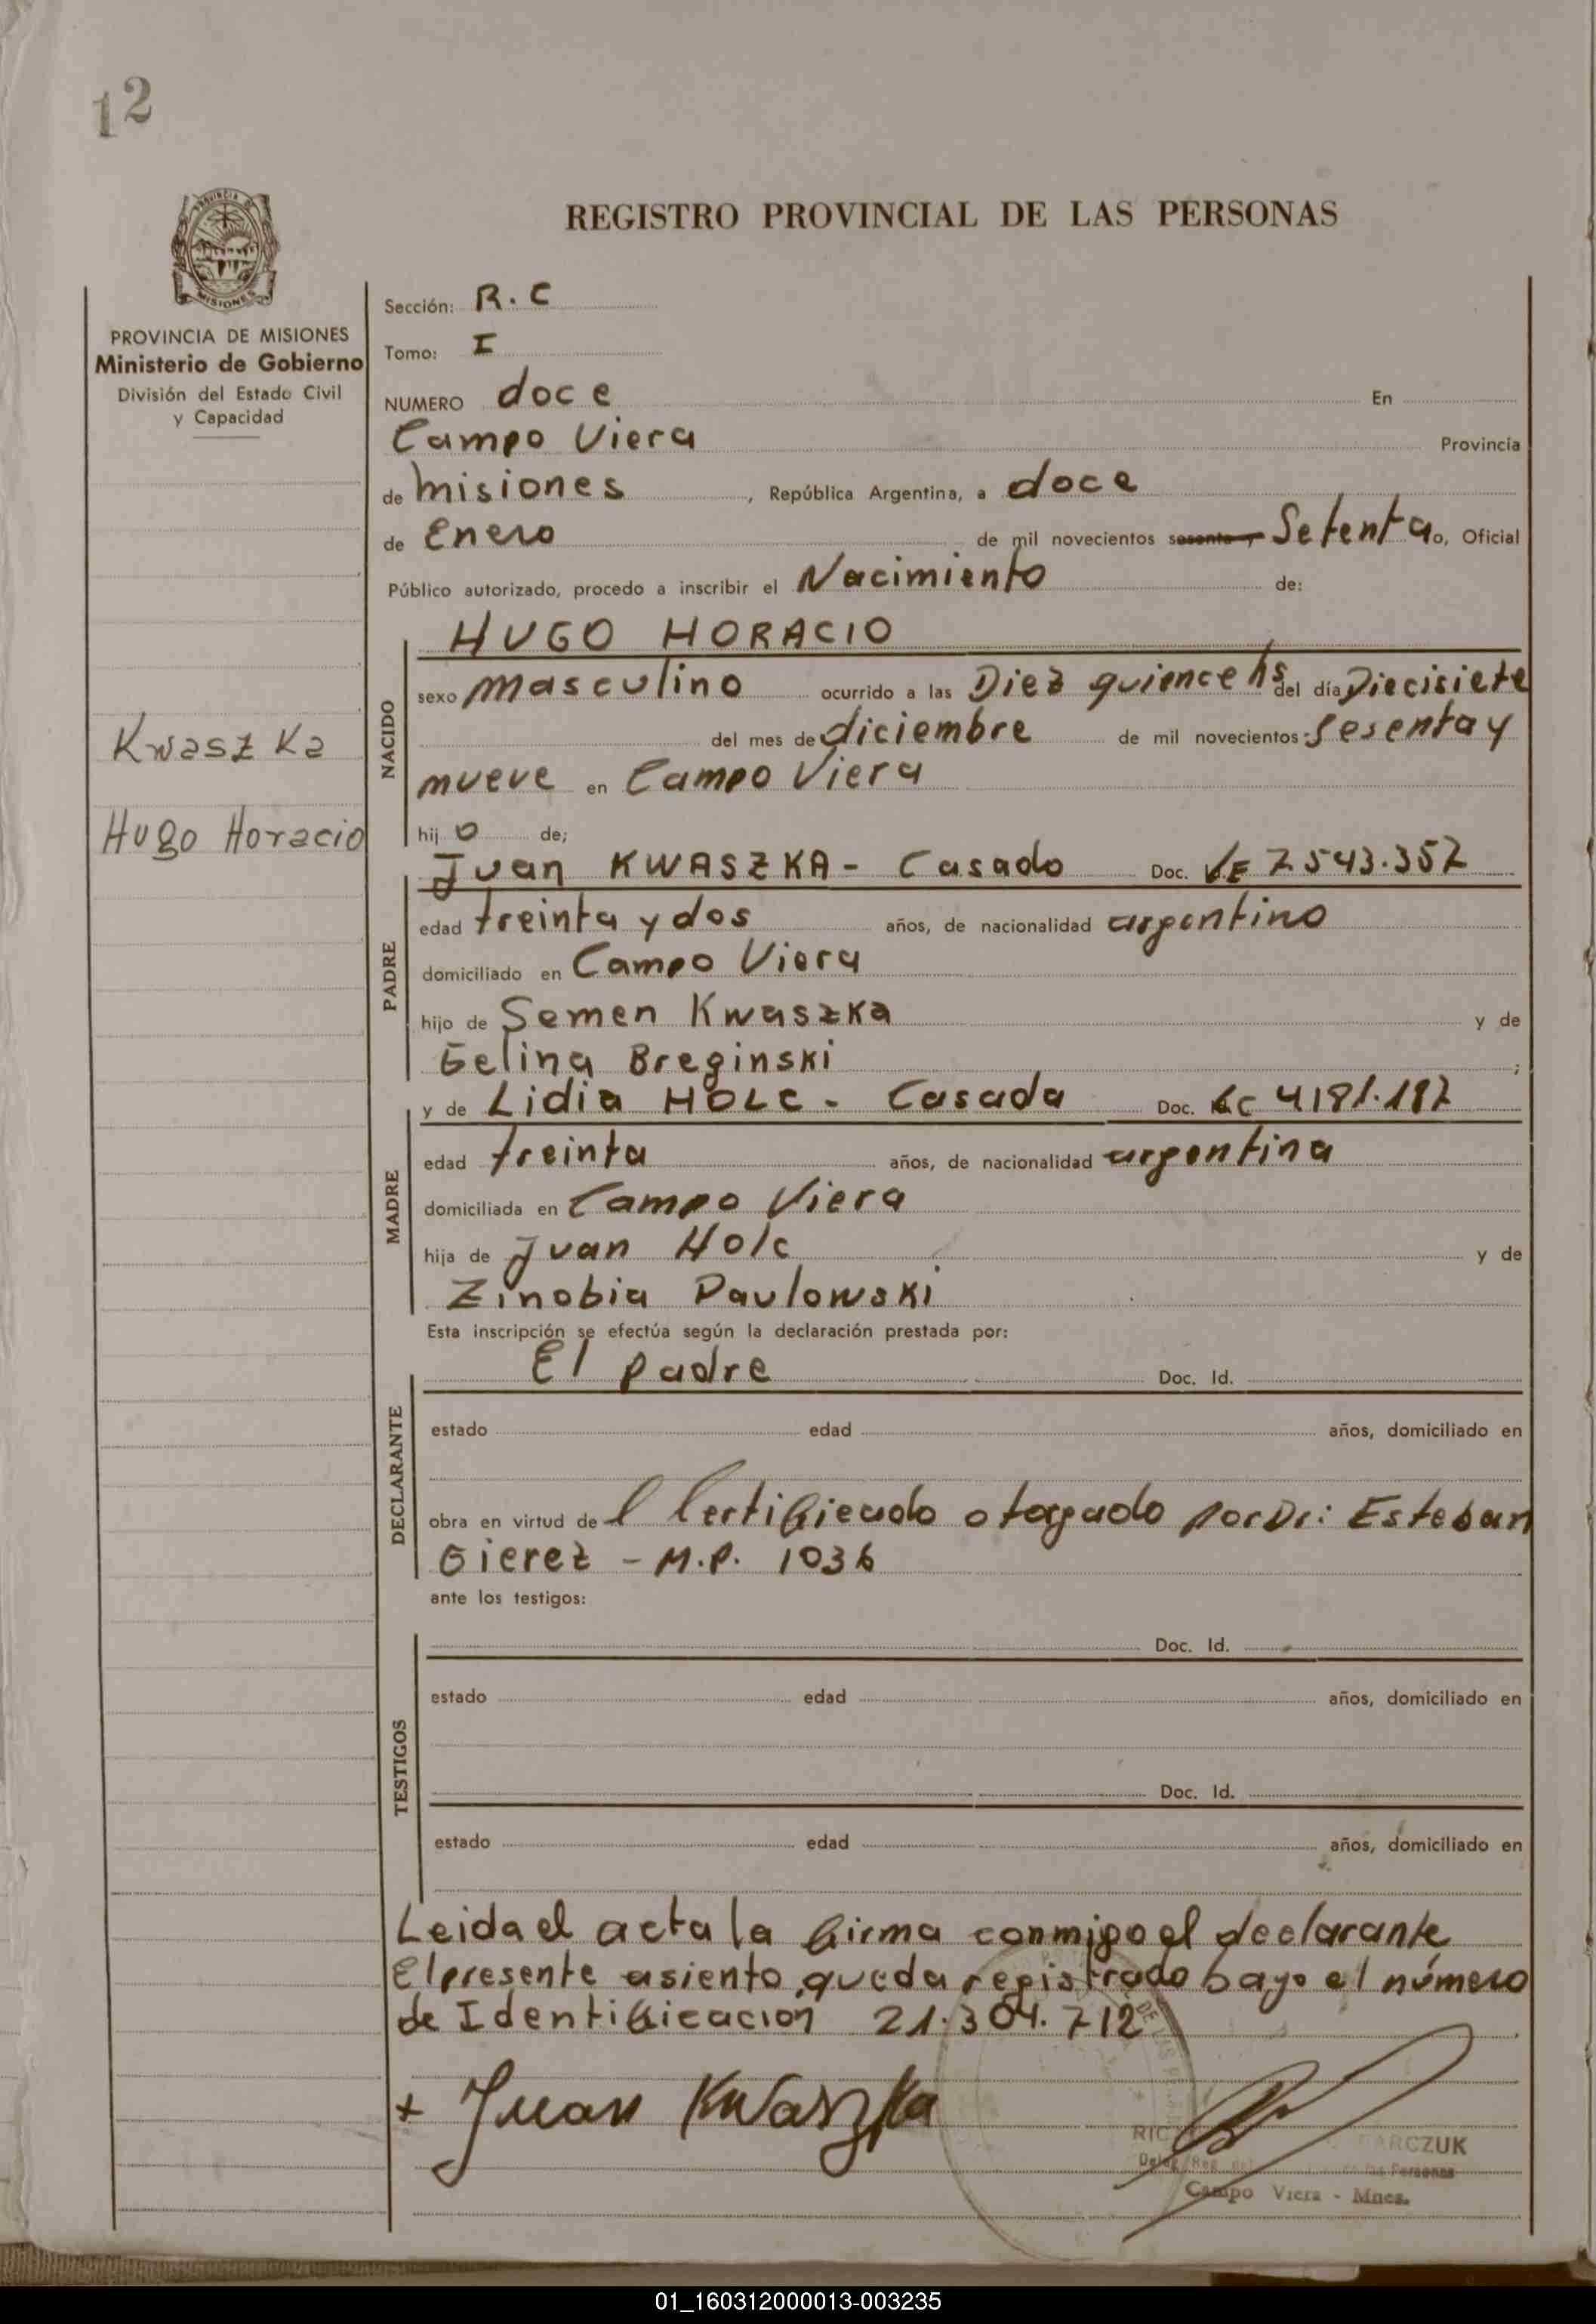 12
REGISTRO PROVINCIAL DE LAS PERSONAS
PROVINCIA DE MISIONES
Ministerio de Gobierno
División del Estado Civil
y Capacidad
Sección: R.C
Tomo: I
NUMERO doce En
Campo Viera Provincia
de misiones, República Argentina, a doce
de Enero de mil novecientos sesenta y Setenta o, Oficial
Público autorizado, procedo a inscribir el Nacimiento de:
HUGO HORACIO
NACIDO
sexo masculino ocurrido a las Diez quience hs del día Diecisiete
del mes de diciembre de mil novecientos: Sesenta y
nueve en Campo Viera
Kwaszka
Hugo Horacio
hijo de;
Juan KWASZKA - Casado Doc. LE 7543.357
PADRE
edad treinta y dos años, de nacionalidad argentino
domiciliado en Campo Viera
hijo de Semen Kwaszka y de
Gelina Breginski ;
y de Lidia HOLC - Casada Doc. LC 4181.187
MADRE
edad treinta años, de nacionalidad argentina
domiciliada en Campo Viera
hija de Juan Holc y de
Zinobia Pavlowski
Esta inscripción se efectúa según la declaración prestada por:
El padre Doc. Id.
DECLARANTE
estado edad años, domiciliado en
obra en virtud del Certificado otorgado por Dr: Esteban
Gierez - M.P. 1036
ante los testigos:
Doc. Id.
TESTIGOS
estado edad años, domiciliado en
Doc. Id.
estado edad años, domiciliado en
Leida el acta la firma conmigo el declarante
El presente asiento, queda registrado bajo el número
de Identificacion 21.304.712
+ Juan Kwaszka
RIC ARCZUK
Deleg. Reg. de las Personas
Campo Viera - Mnes.
01_160312000013-003235